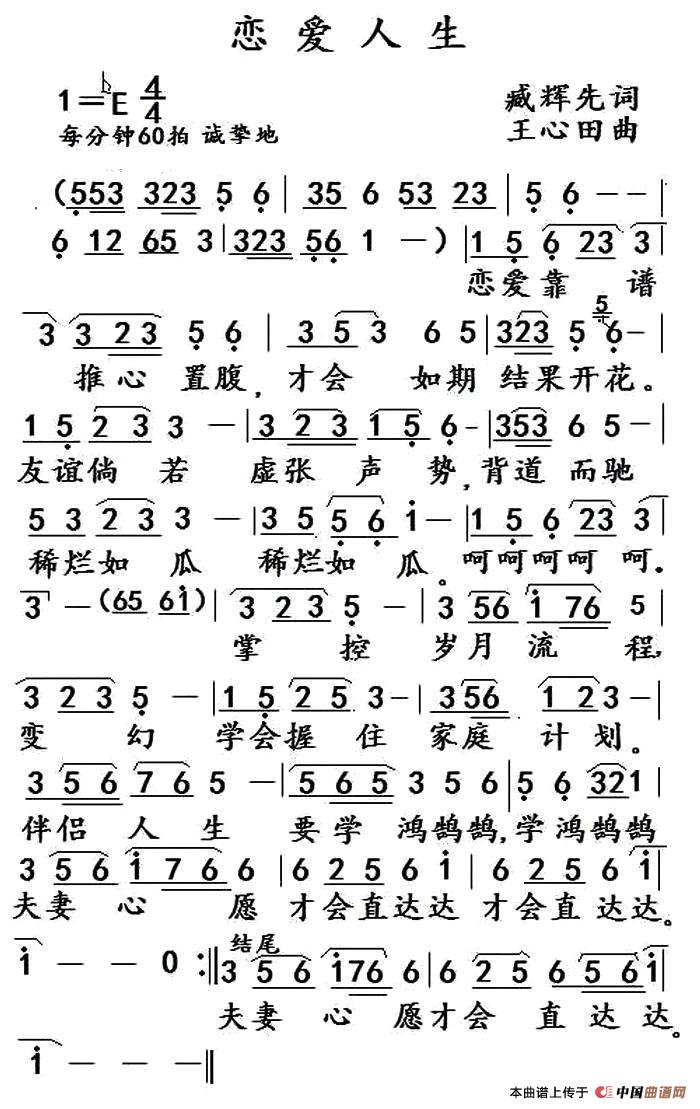 恋爱人生
1=♭E 4/4
臧辉先词
每分钟60拍 诚挚地
王心田曲
(553 323 5 6 | 35 6 53 23 | 5 6 - -
6 12 65 3 | 323 56 1 - ) | 1 5 6 23 3 |
恋爱靠 谱
3 3 23 5 6 | 3 5 3 6 5 | 323 5 5 6 - |
推心 置腹, 才会 如期 结果开花。
1 5 2 3 3 - | 3 2 3 1 5 6 - | 353 6 5 - |
友谊倘 若 虚张 声 势,背道 而驰
5 3 2 3 3 - | 3 5 5 6 i - | 1 5 6 23 3 |
稀烂如 瓜 稀烂如 瓜。呵呵呵呵 呵.
3 - (65 6i) | 3 2 3 5 - | 3 56 i 76 5 |
掌 控 岁月 流 程,
3 2 3 5 - | 1 5 2 5 3 - | 3 56 1 2 3 - |
变 幻 学会握 住 家庭 计 划。
3 5 6 7 6 5 - | 5 6 5 3 5 6 | 5 6 321 |
伴侣 人 生 要学 鸿鹄鹄,学鸿鹄鹄
3 5 6 i 7 6 6 | 6 2 5 6 i | 6 2 5 6 i |
夫妻 心 愿 才会直达达 才会直 达达。
i - - 0 :|| 结尾 3 5 6 i76 6 | 6 2 5 5 6 i |
夫妻 心 愿才会 直达达。
i - - - ||
本曲谱上传于 中国曲谱网